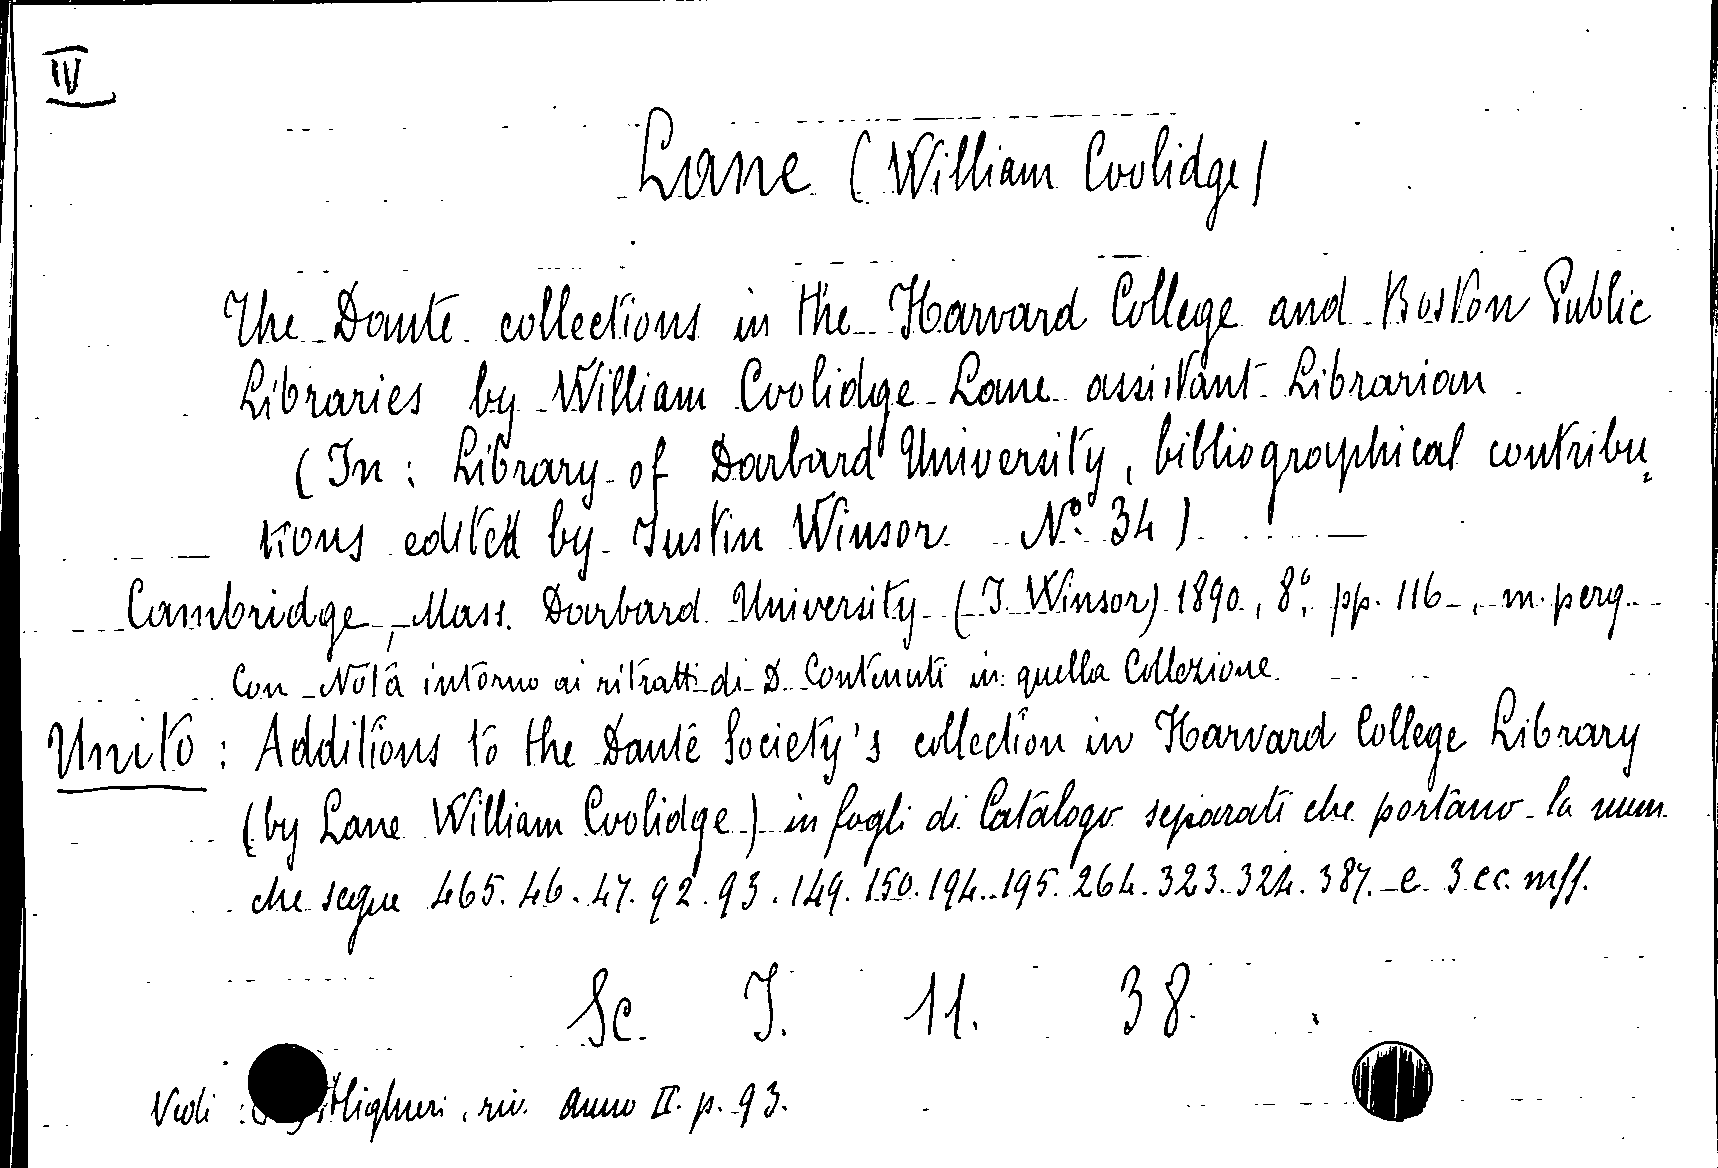 IV
Lane (William Coolidge)
The Dante collections in the Harvard College and Boston Public
Libraries by William Coolidge Lane assistant Librarian
(In: Library of Darbard University, bibliographical contribu=
tions edited by Justin Winsor N.º 34)
Cambridge, Mass. Darbard University (J. Winsor) 1890, 8º, pp. 116-, m. perg.
Con Nota intorno ai ritratti di D. Contenuti in quella Collezione
Unito: Additions to the Dante Society's collection in Harvard College Library
(by Lane William Coolidge) in fogli di Catalogo separati che portano la num.
che segue 465. 46. 47. 92. 93. 149. 150. 194. 195. 264. 323. 324. 387. e 3 cc. mss.
Sc. J. 11. 38.
Vedi: Alighieri, riv. Anno II. p. 93.